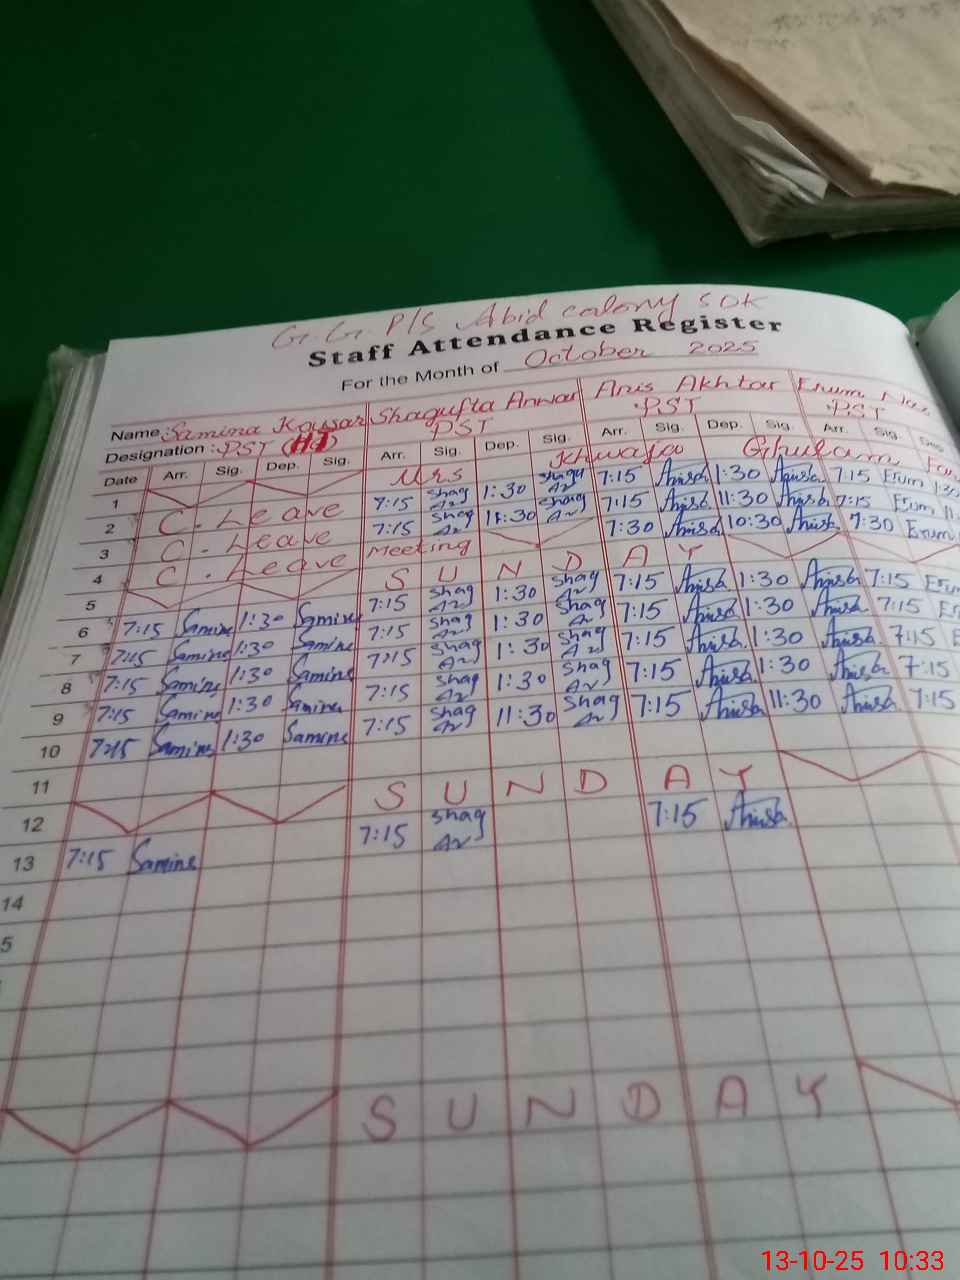 G.G. P/S Abid colony SDK
Staff Attendance Register
For the Month of October 2025
Name: Samina Kousar Shagufta Anwar Anis Akhtar Erum Naz
Designation: PST (HT) PST PST PST
Date Arr. Sig. Dep. Sig. Arr. Sig. Dep. Sig. Arr. Sig. Dep. Sig. Arr. Sig. Dep.
1 Urs Khwaja Ghulam
2 C. Leave 7:15 Shag Ar 1:30 Shagu Ar 7:15 Anisa 1:30 Anisa 7:15 Erum 1:30
3 C. Leave 7:15 Shag Ar 11:30 Shag Ar 7:15 Anisa 11:30 Anisa 7:15 Erum 11:
4 C. Leave Meeting 7:30 Anisa 10:30 Anisa 7:30 Erum
5 S U N D A Y
6 7:15 Samine 1:30 Samine 7:15 Shag Ar 1:30 Shag Ar 7:15 Anisa 1:30 Anisa 7:15 Erum
7 7:15 Samine 1:30 Samine 7:15 Shag Ar 1:30 Shag Ar 7:15 Anisa 1:30 Anisa 7:15
8 7:15 Samine 1:30 Samine 7:15 Shag Ar 1:30 Shag Ar 7:15 Anisa 1:30 Anisa 7:15
9 7:15 Samine 1:30 Samine 7:15 Shag Ar 1:30 Shag Ar 7:15 Anisa 1:30 Anisa 7:15
10 7:15 Samine 1:30 Samine 7:15 Shag Ar 11:30 Shag Ar 7:15 Anisa 11:30 Anisa 7:15
11
12 S U N D A Y
13 7:15 Samine 7:15 Shag Ar 7:15 Anisa
14
5
S U N D A Y
13-10-25 10:33